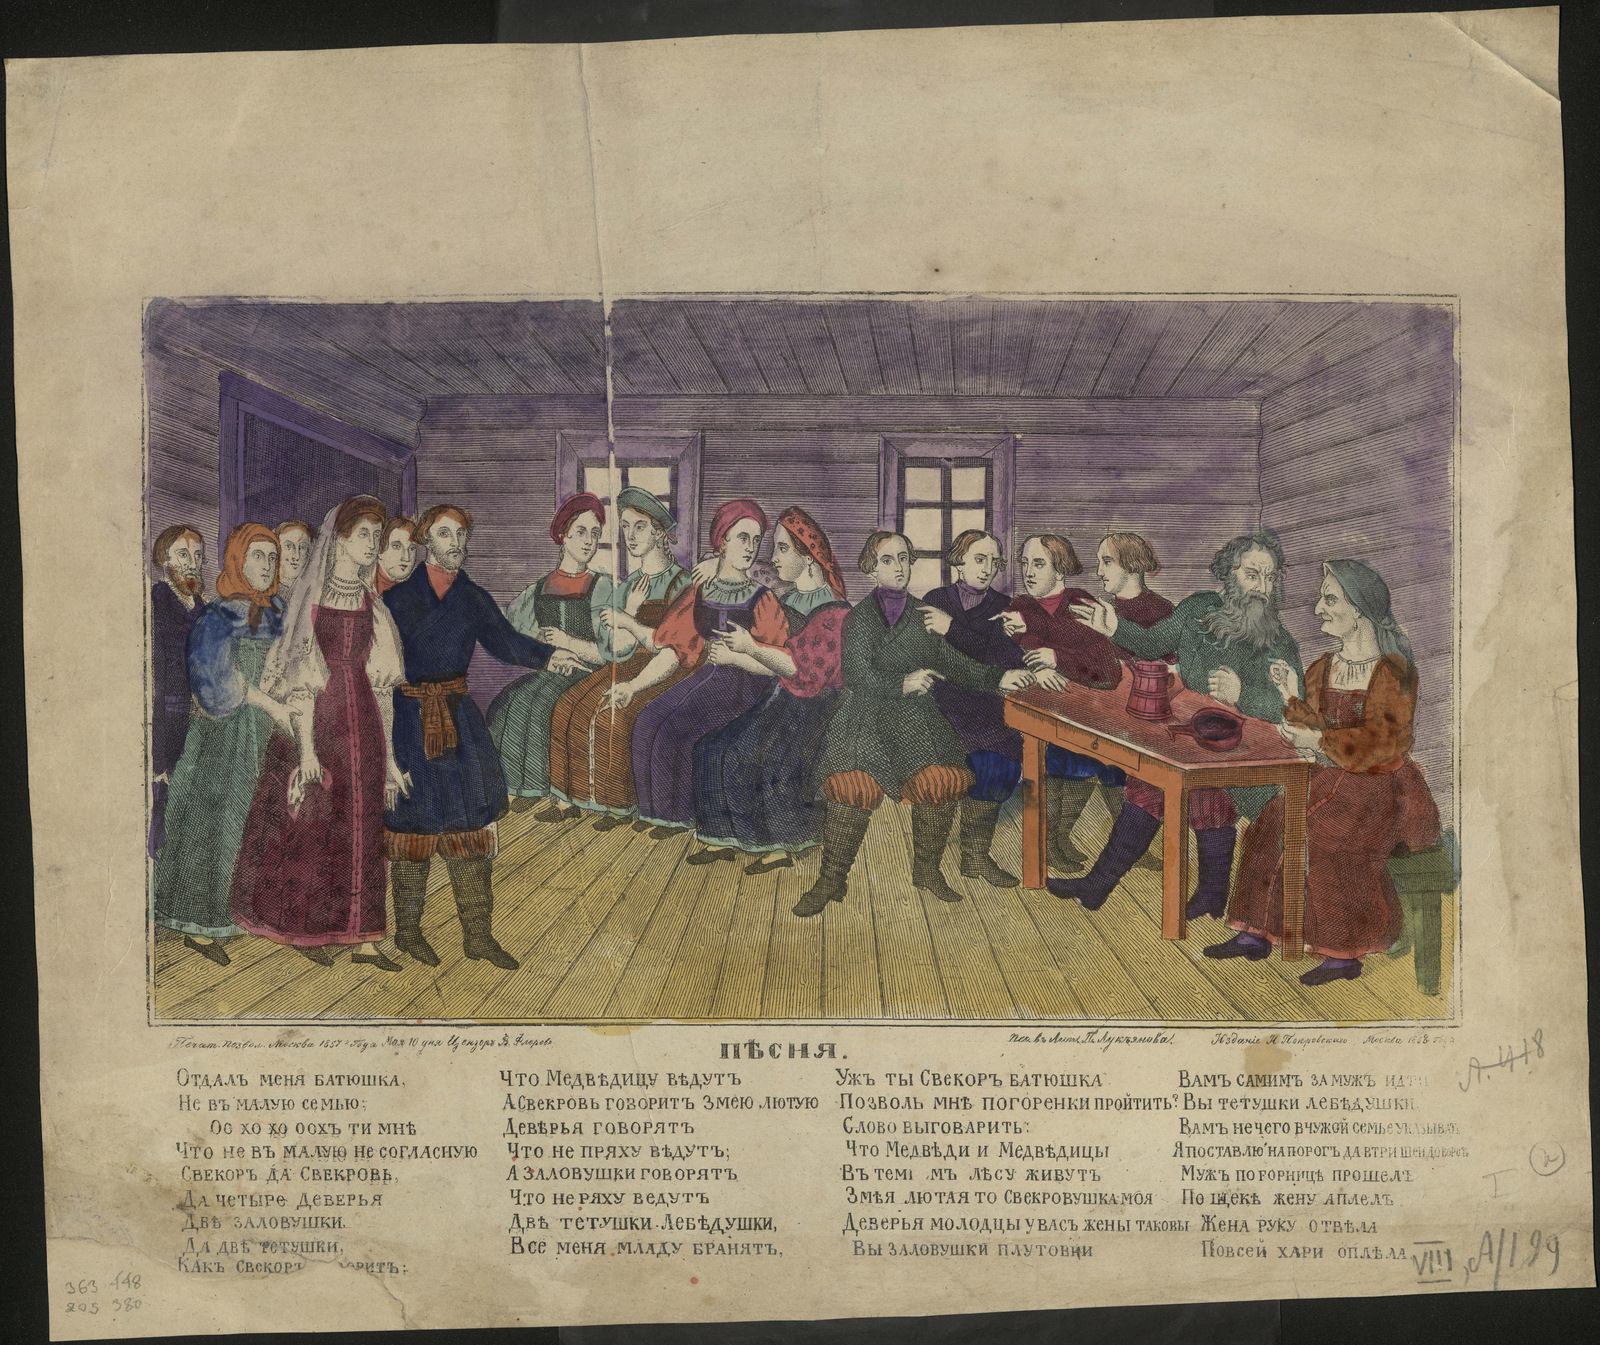 Печат. позвол. Москва 1857 года Мая 10 дня Цензоръ В. Флеровъ
Печ. въ Лит. П. Лукьянова.
Издание П Покровскаго Москва 1868
ПѢСНЯ.
ОТДАЛЪ МЕНЯ БАТЮШКА,
НЕ ВЪ МАЛУЮ СЕМЬЮ;
ОС ХО ХО ОСХЪ ТИ МНѢ
ЧТО НЕ ВЪ МАЛУЮ НЕ СОГЛАСНУЮ
СВЕКОРЪ ДА СВЕКРОВЬ,
ДА ЧЕТЫРЕ ДЕВЕРЬЯ
ДВѢ ЗАЛОВУШКИ
ДА ДВѢ ТЕТУШКИ,
КАКЪ СВЕКОРЪ
ЧТО МЕДВѢДИЦУ ВѢДУТЪ
А СВЕКРОВЬ ГОВОРИТЪ ЗМЕЮ ЛЮТУЮ
ДЕВѢРЬЯ ГОВОРЯТЪ
ЧТО НЕ ПРЯХУ ВѢДУТЪ;
А ЗАЛОВУШКИ ГОВОРЯТЪ
ЧТО НЕ РЯХУ ВЕДУТЪ
ДВѢ ТЕТУШКИ ЛЕБѢДУШКИ,
ВСЕ МЕНЯ МЛАДУ БРАНЯТЪ,
УЖЪ ТЫ СВЕКОР БАТЮШКА
ПОЗВОЛЬ МНѢ ПОГОРЕНКИ ПРОЙТИТЬ?
СЛОВО ВЫГОВАРИТЬ:
ЧТО МЕДВѢДИ И МЕДВѢДИЦЫ
ВЪ ТЕМ МЪ ЛѢСУ ЖИВУТЪ
ЗМѢЯ ЛЮТАЯ ТО СВЕКРОВУШКА МОЯ
ДЕВЕРЬЯ МОЛОДЦЫ У ВАСЪ ЖЕНЫ ТАКОВЫ
ВЫ ЗАЛОВУШКИ ПЛУТОВКИ
ВАМЪ САМИМЪ ЗАМУЖЪ ИДТИ
ВЫ ТЕТУШКИ ЛЕБѢДУШКИ
ВАМЪ НЕЧЕГО В ЧУЖОЙ СЕМЬЕ УКАЗЫВАТЬ
Я ПОСТАВЛЮ НА ПОРОГЪ ДА ВТРИ ШЕИ ДОВОРОТЪ
МУЖЪ ПО ГОРНИЦѢ ПРОШЕЛЪ
ПО ЩЕКѢ ЖЕНУ АПЛЕЛЪ
ЖЕНА РУКУ ОТВѢЛА
ПОВСЕЙ ХАРИ ОПЛѢЛА
А.418
I
2
VIII, А/129
363 448
205 380